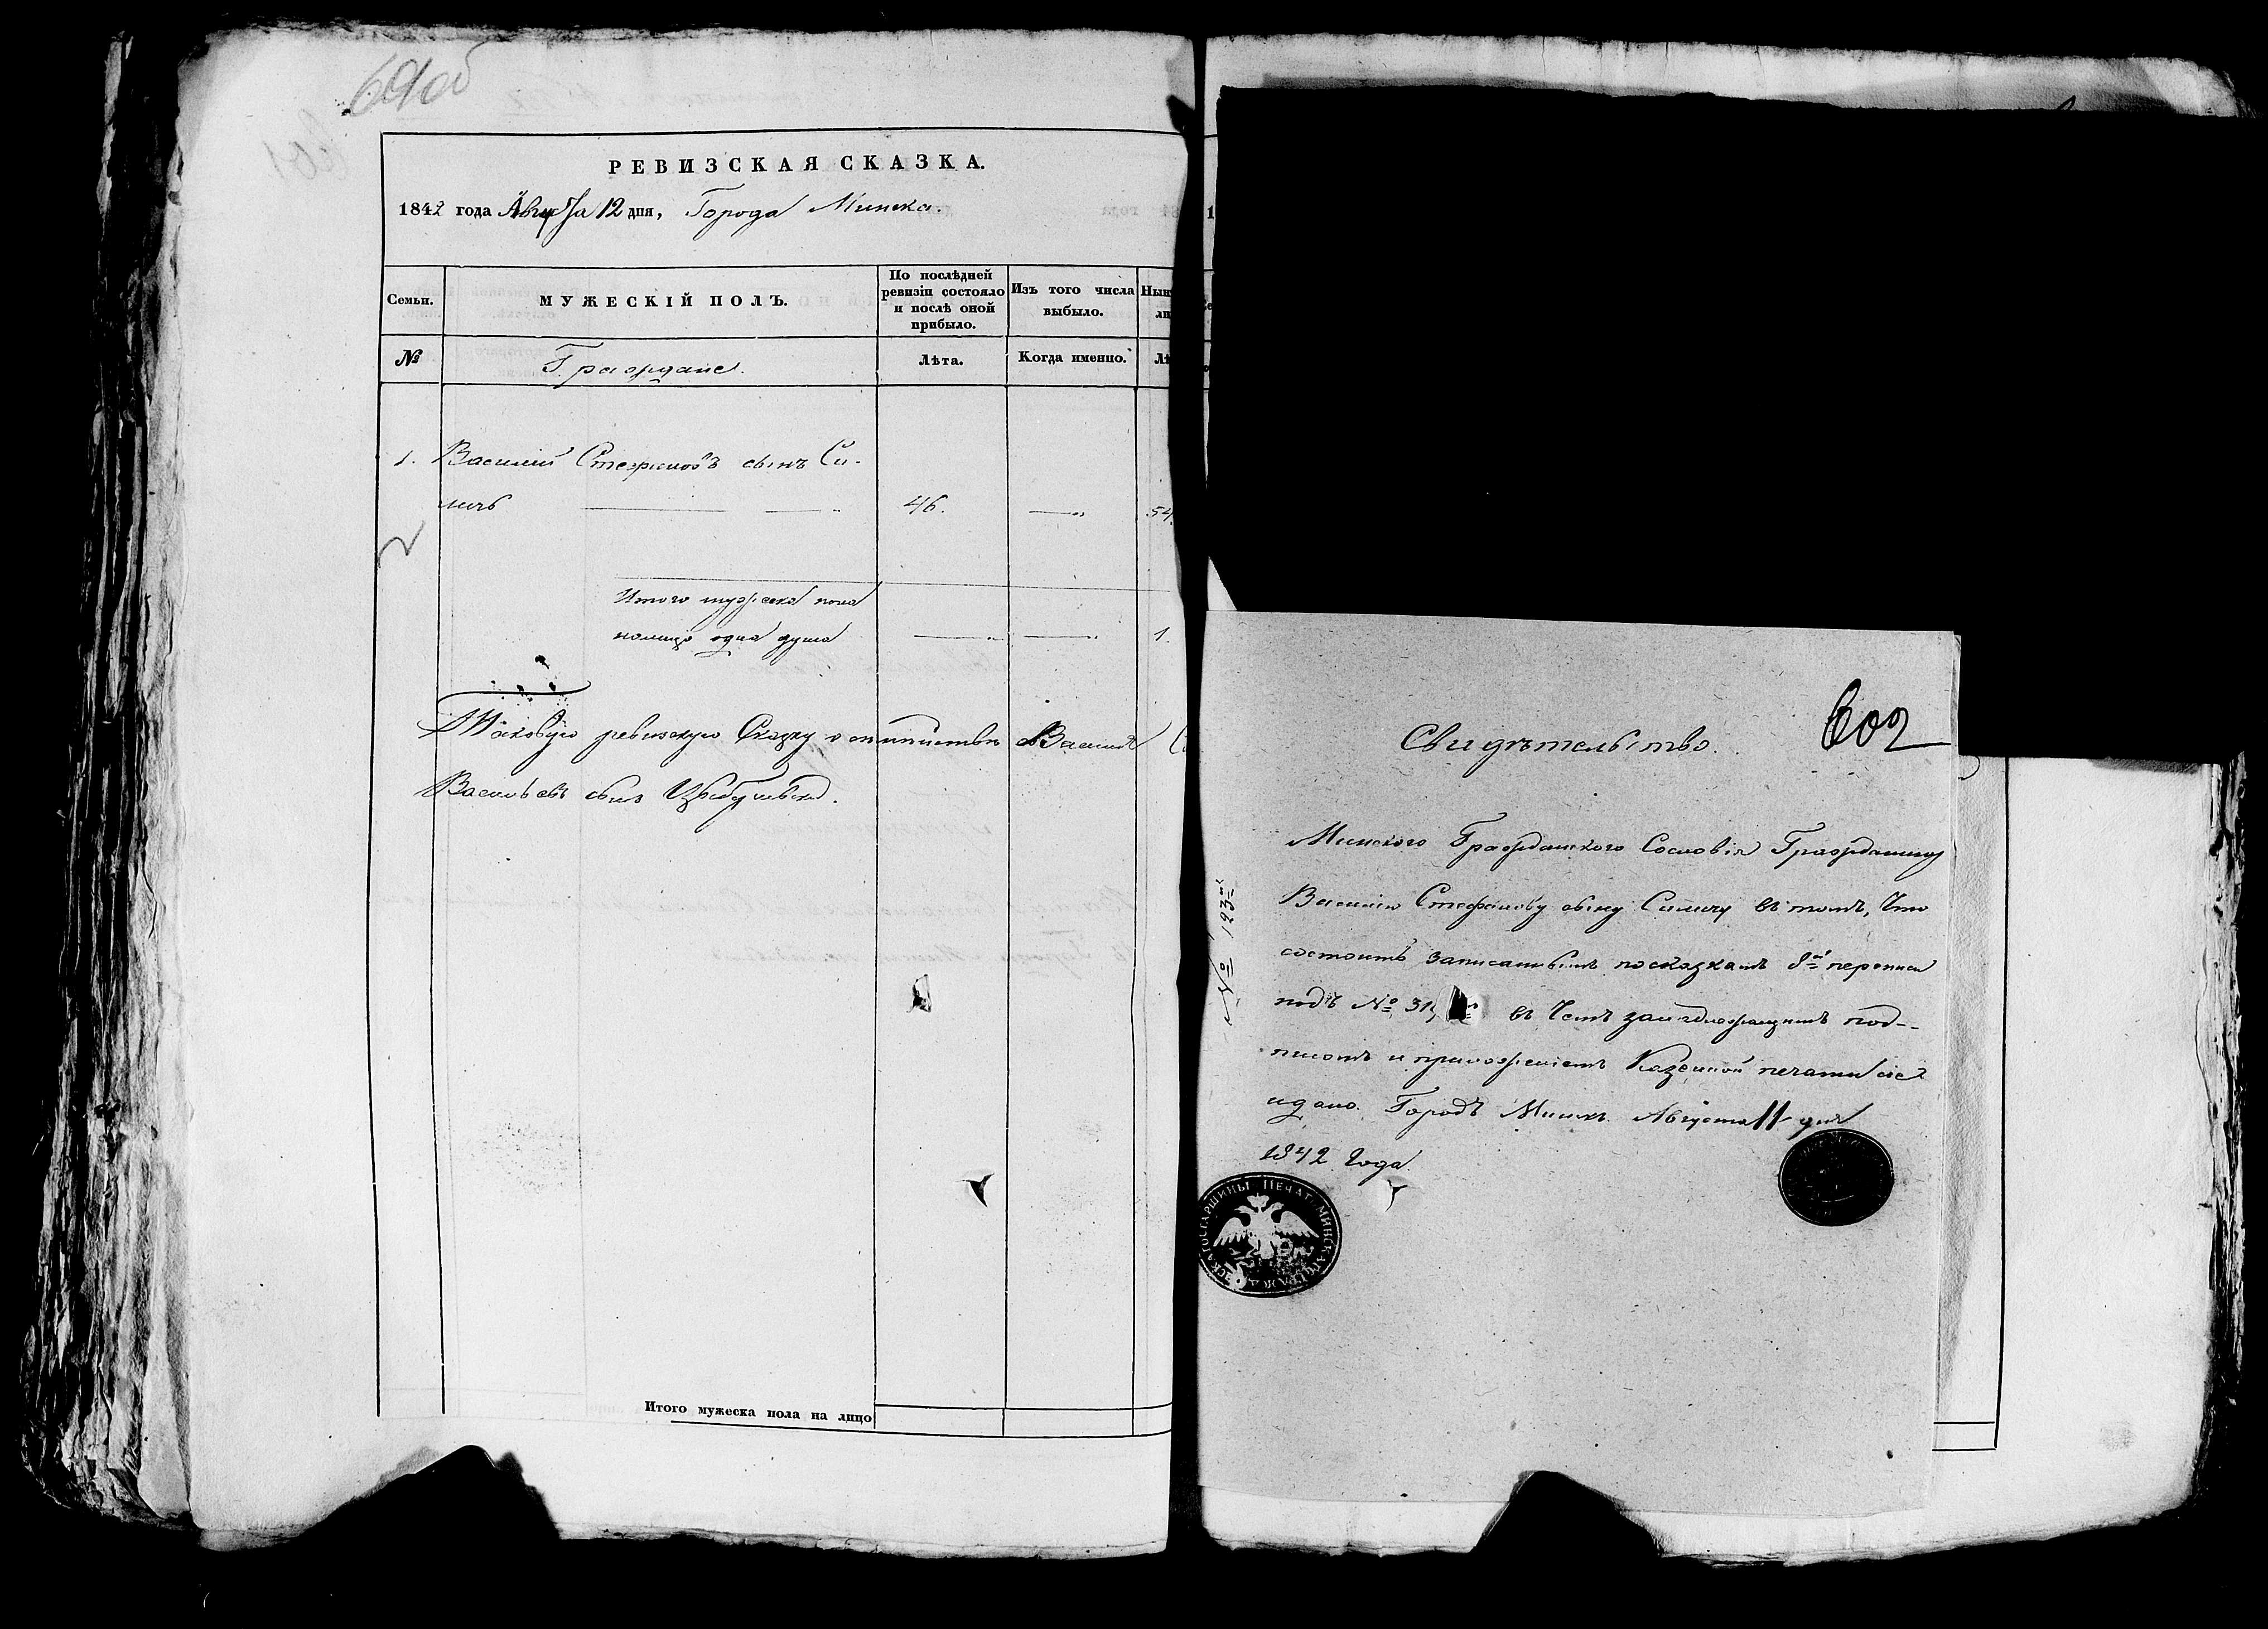 РЕВИЗСКАЯ СКАЗКА.
1842 года Августа 12 дня, Города Минска.
Семьи.
МУЖЕСКІЙ ПОЛЪ.
По послѣдней
ревизіи состояло
и послѣ оной
прибыло.
Изъ того числа
выбыло.
№
Граждане.
Лѣта.
Когда именно.
1. Василій Стефановъ сынъ Си-
личъ 46. 54.
Итого мужеска пола
налицо одна душа 1.
Таковую ревизскую Сказку о Василій
Васильевъ сынъ
Итого мужеска пола на лицо
602
Свидѣтельство.
Минского Гражданского Сословія Гражданину
Василію Стефанову сыну Силичу въ томъ, Что
состоитъ записаннымъ посказкамъ 8й переписи
подъ № 31 въ Чемъ занадлежащимъ под--
писомъ и приложеніемъ Казенной печати сіе
идано. Городъ Минскъ. Августа 11 дня
1842 Года.
№ 123
ПЕЧАТ МИНСКАГО ГРАЖД СТАРШИНЫ